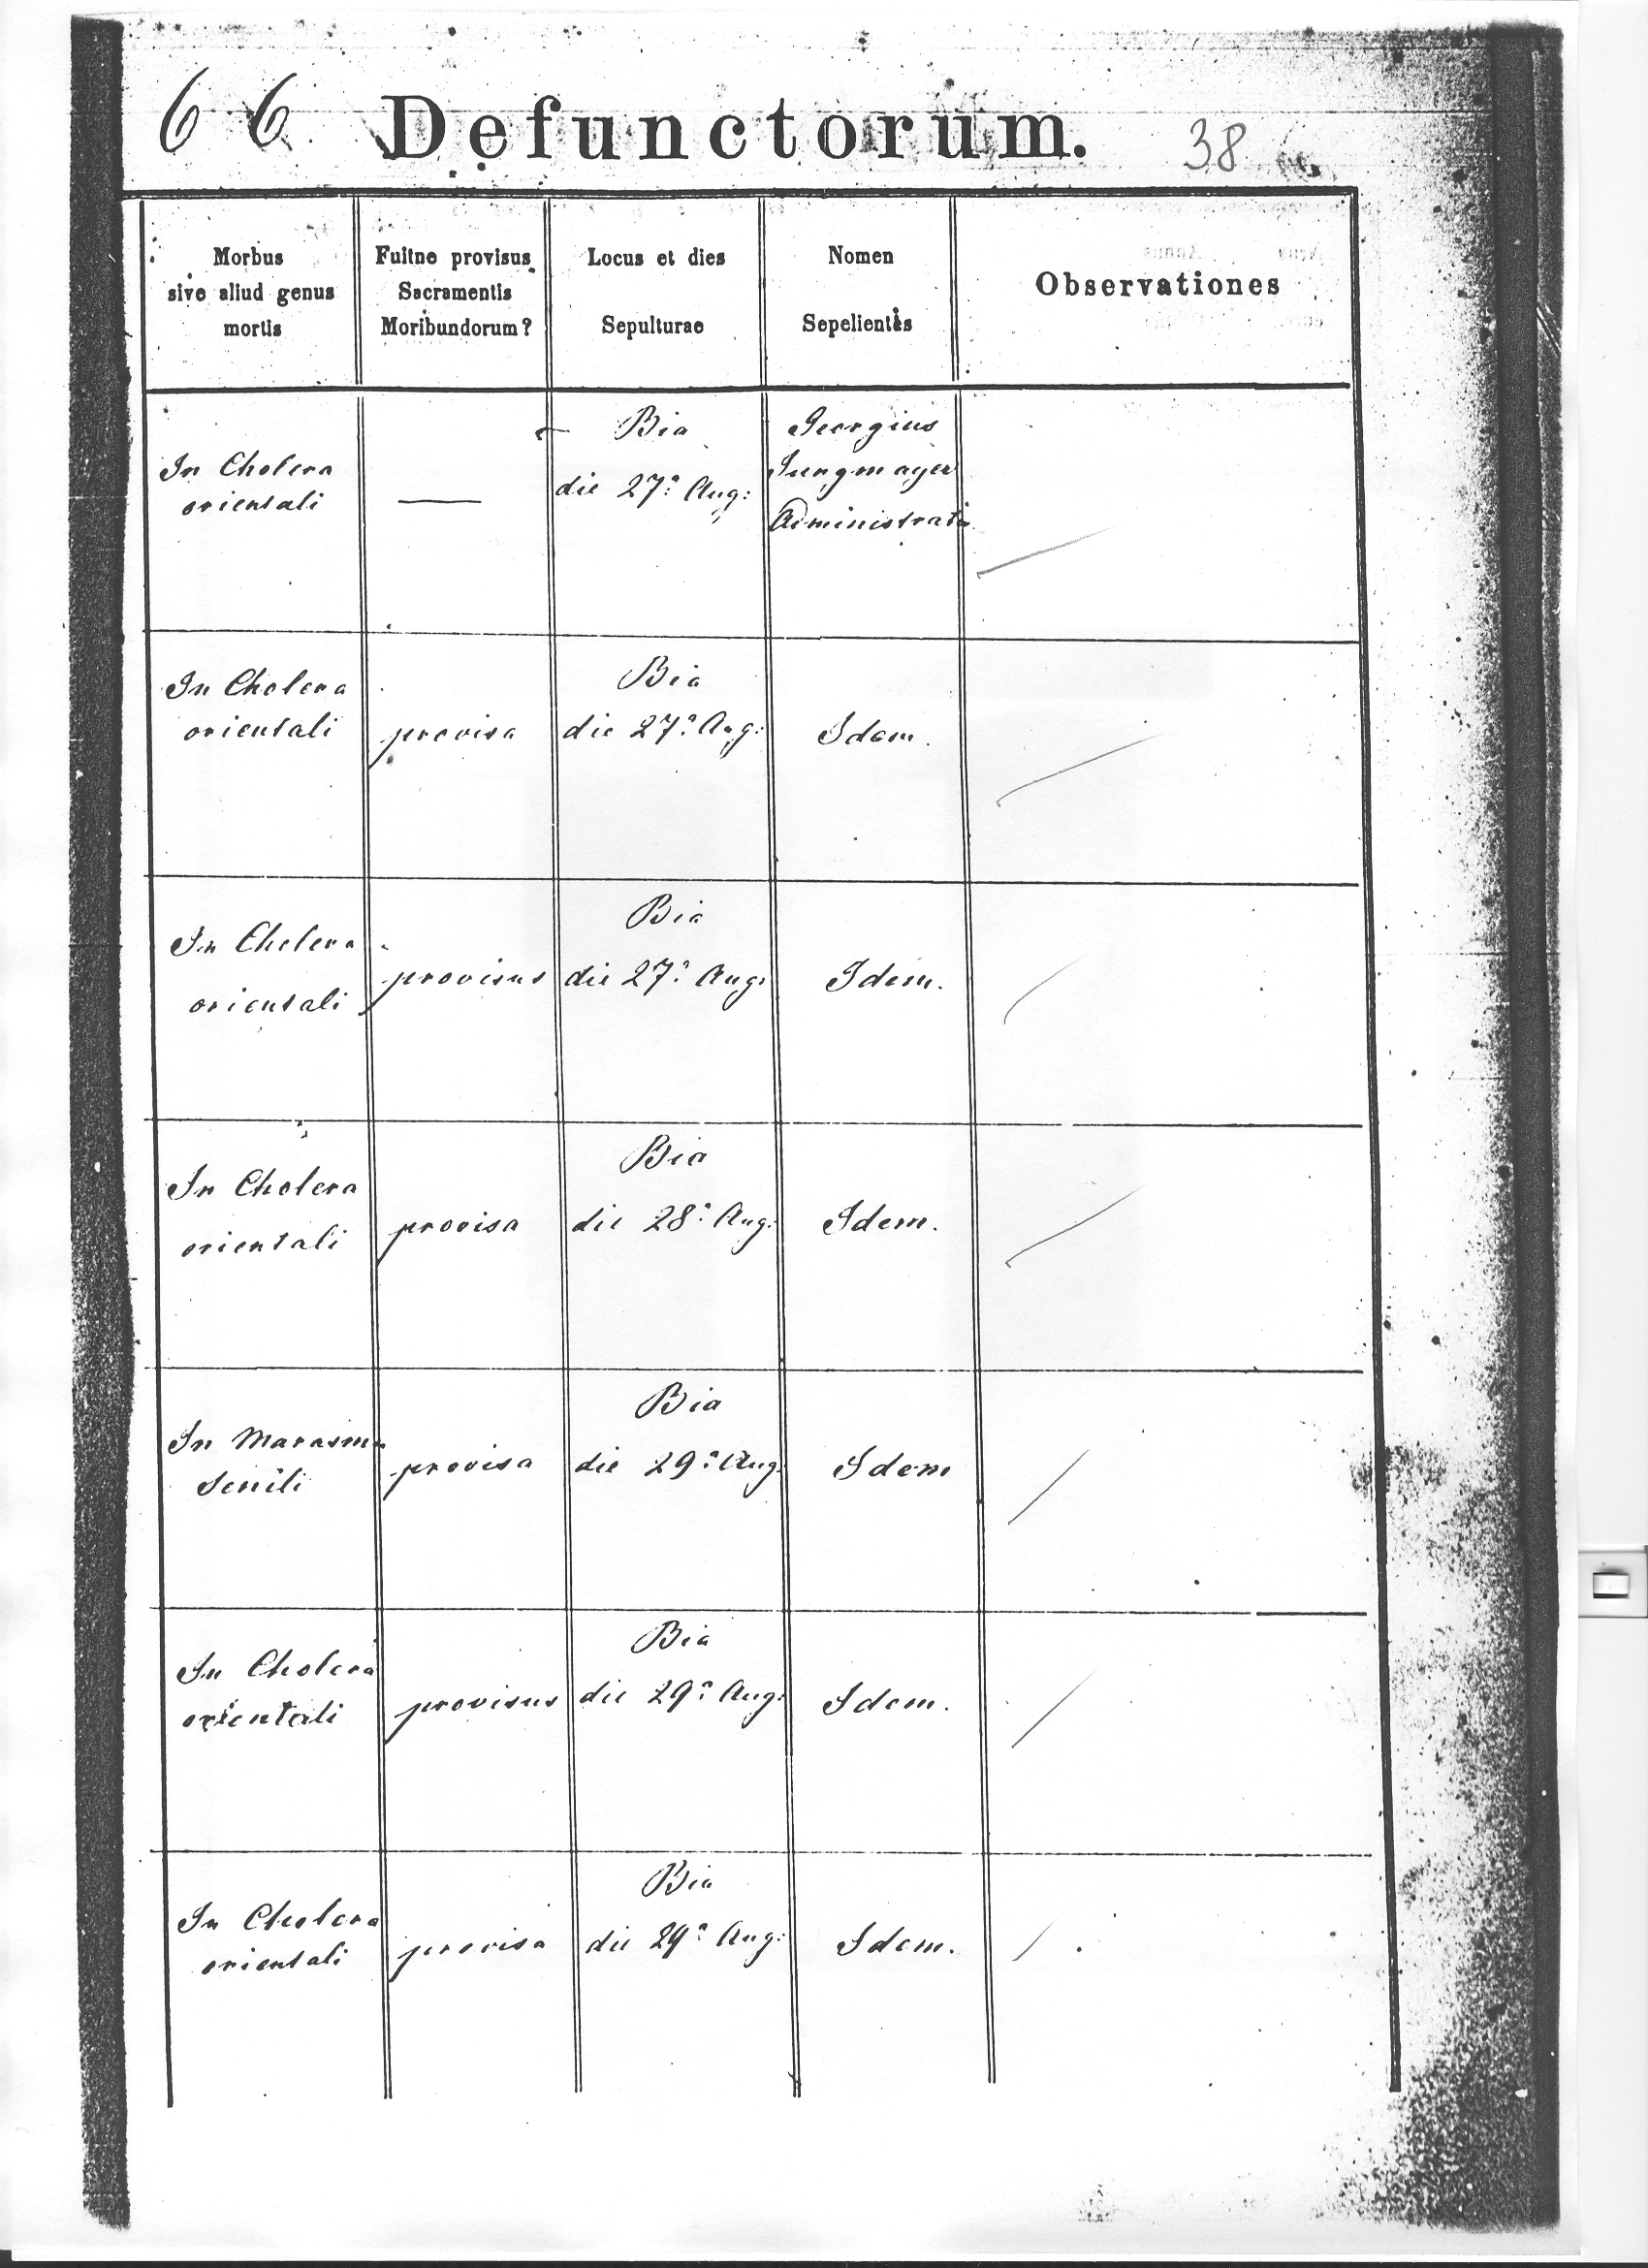 66 Defunctorum. 38
Morbus
sive aliud genus
mortis
Fuitne provisus
Sacramentis
Moribundorum?
Locus et dies
Sepulturae
Nomen
Sepelientis
Observationes
In Cholera
orientali
—
Bia
die 27ª Aug:
Georgius
Jungmayer
Administrator
In Cholera
orientali
provisa
Bia
die 27ª Aug:
Idem.
In Cholera
orientali
provisus
Bia
die 27ª Aug:
Idem.
In Cholera
orientali
provisa
Bia
die 28ª Aug:
Idem.
In Marasmo
senili
provisa
Bia
die 29ª Aug:
Idem
In Cholera
orientali
provisus
Bia
die 29ª Aug:
Idem.
In Cholera
orientali
provisa
Bia
die 29ª Aug:
Idem.